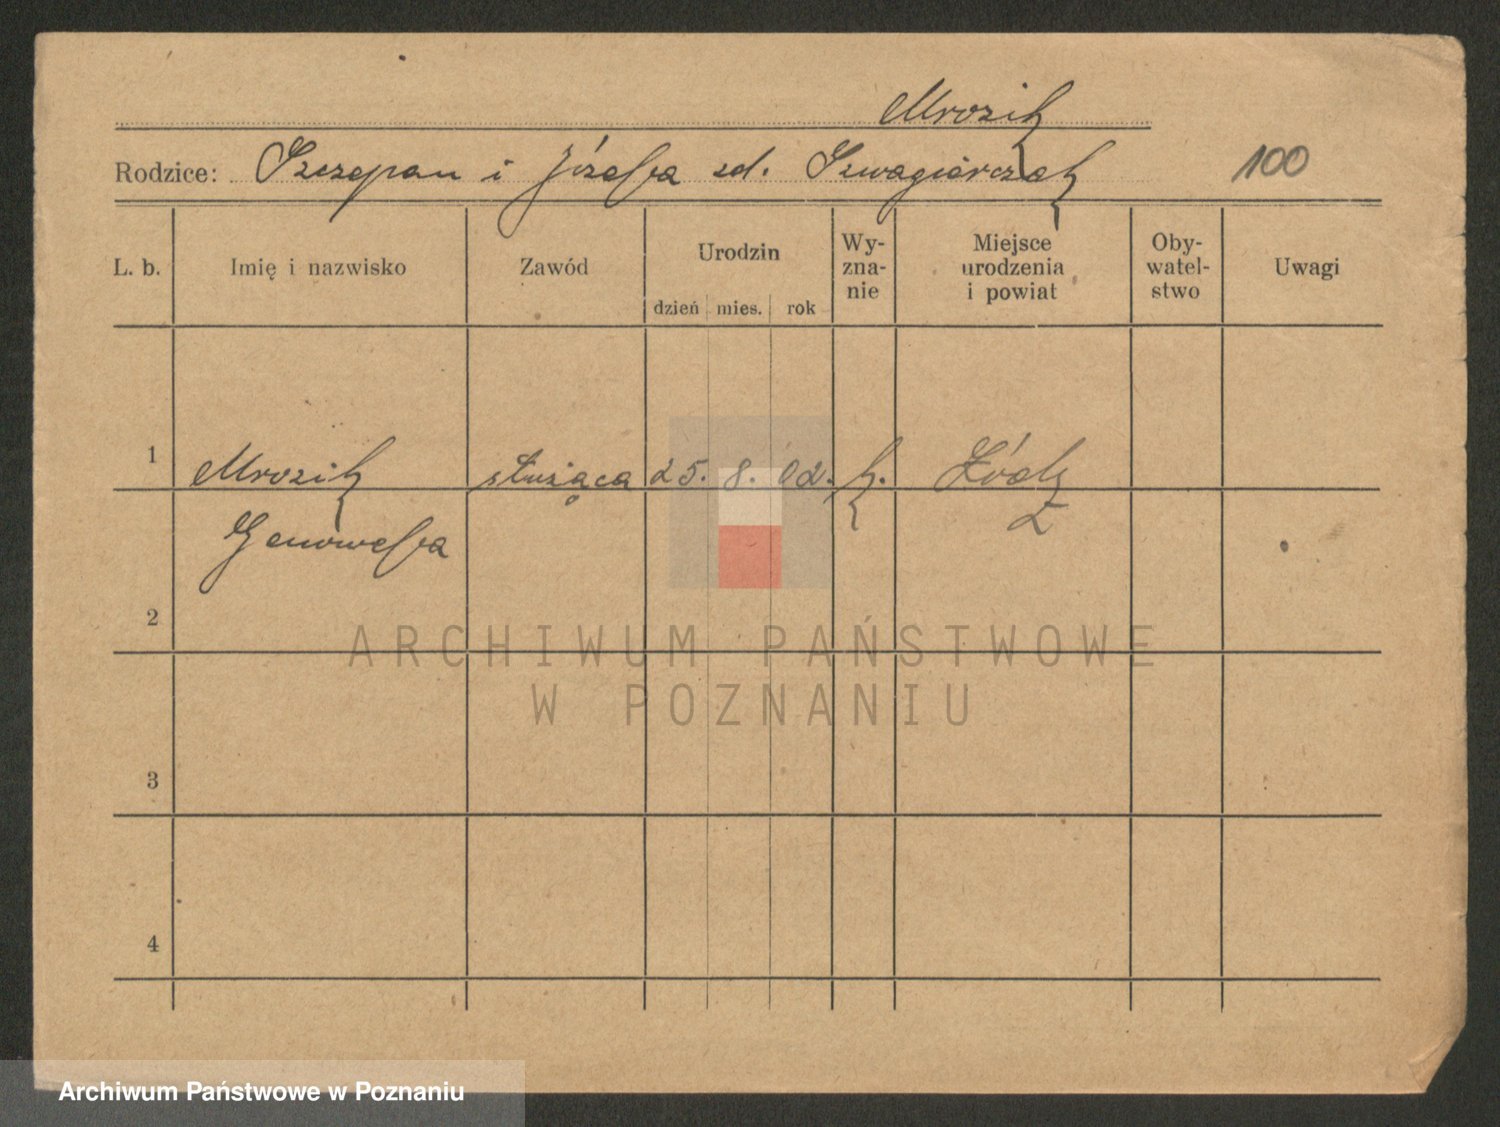 Mrozik
Rodzice: Szczepan i Józefa zd. Szwagierczak 100
L. b. Imię i nazwisko Zawód Urodzin dzień mies. rok Wy-zna-nie Miejsce urodzenia i powiat Oby-watel-stwo Uwagi
1 Mrozik służąca 25. 8. 02. k. Łódź
Genowefa
2
3
4
ARCHIWUM PAŃSTWOWE
W POZNANIU
Archiwum Państwowe w Poznaniu